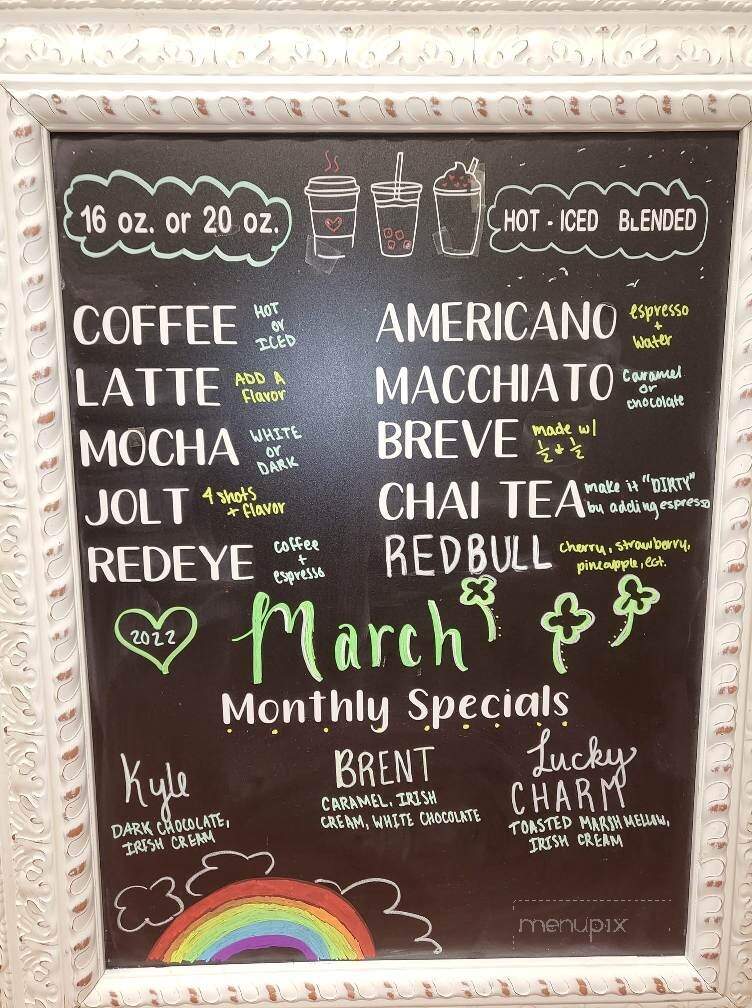 16 oz. or 20 oz.
HOT - ICED BLENDED
COFFEE HOT or ICED
LATTE ADD A Flavor
MOCHA WHITE or DARK
JOLT 4 shots + flavor
REDEYE coffee + espresso
AMERICANO espresso + Water
MACCHIATO Caramel or chocolate
BREVE made w/ ½ + ½
CHAI TEA make it "DIRTY" by adding espresso
REDBULL cherry, strawberry, pineapple, ect.
2022
March
Monthly Specials
Kyle
DARK CHOCOLATE,
IRISH CREAM
BRENT
CARAMEL, IRISH
CREAM, WHITE CHOCOLATE
Lucky
CHARM
TOASTED MARSHMELLOW,
IRISH CREAM
menupix